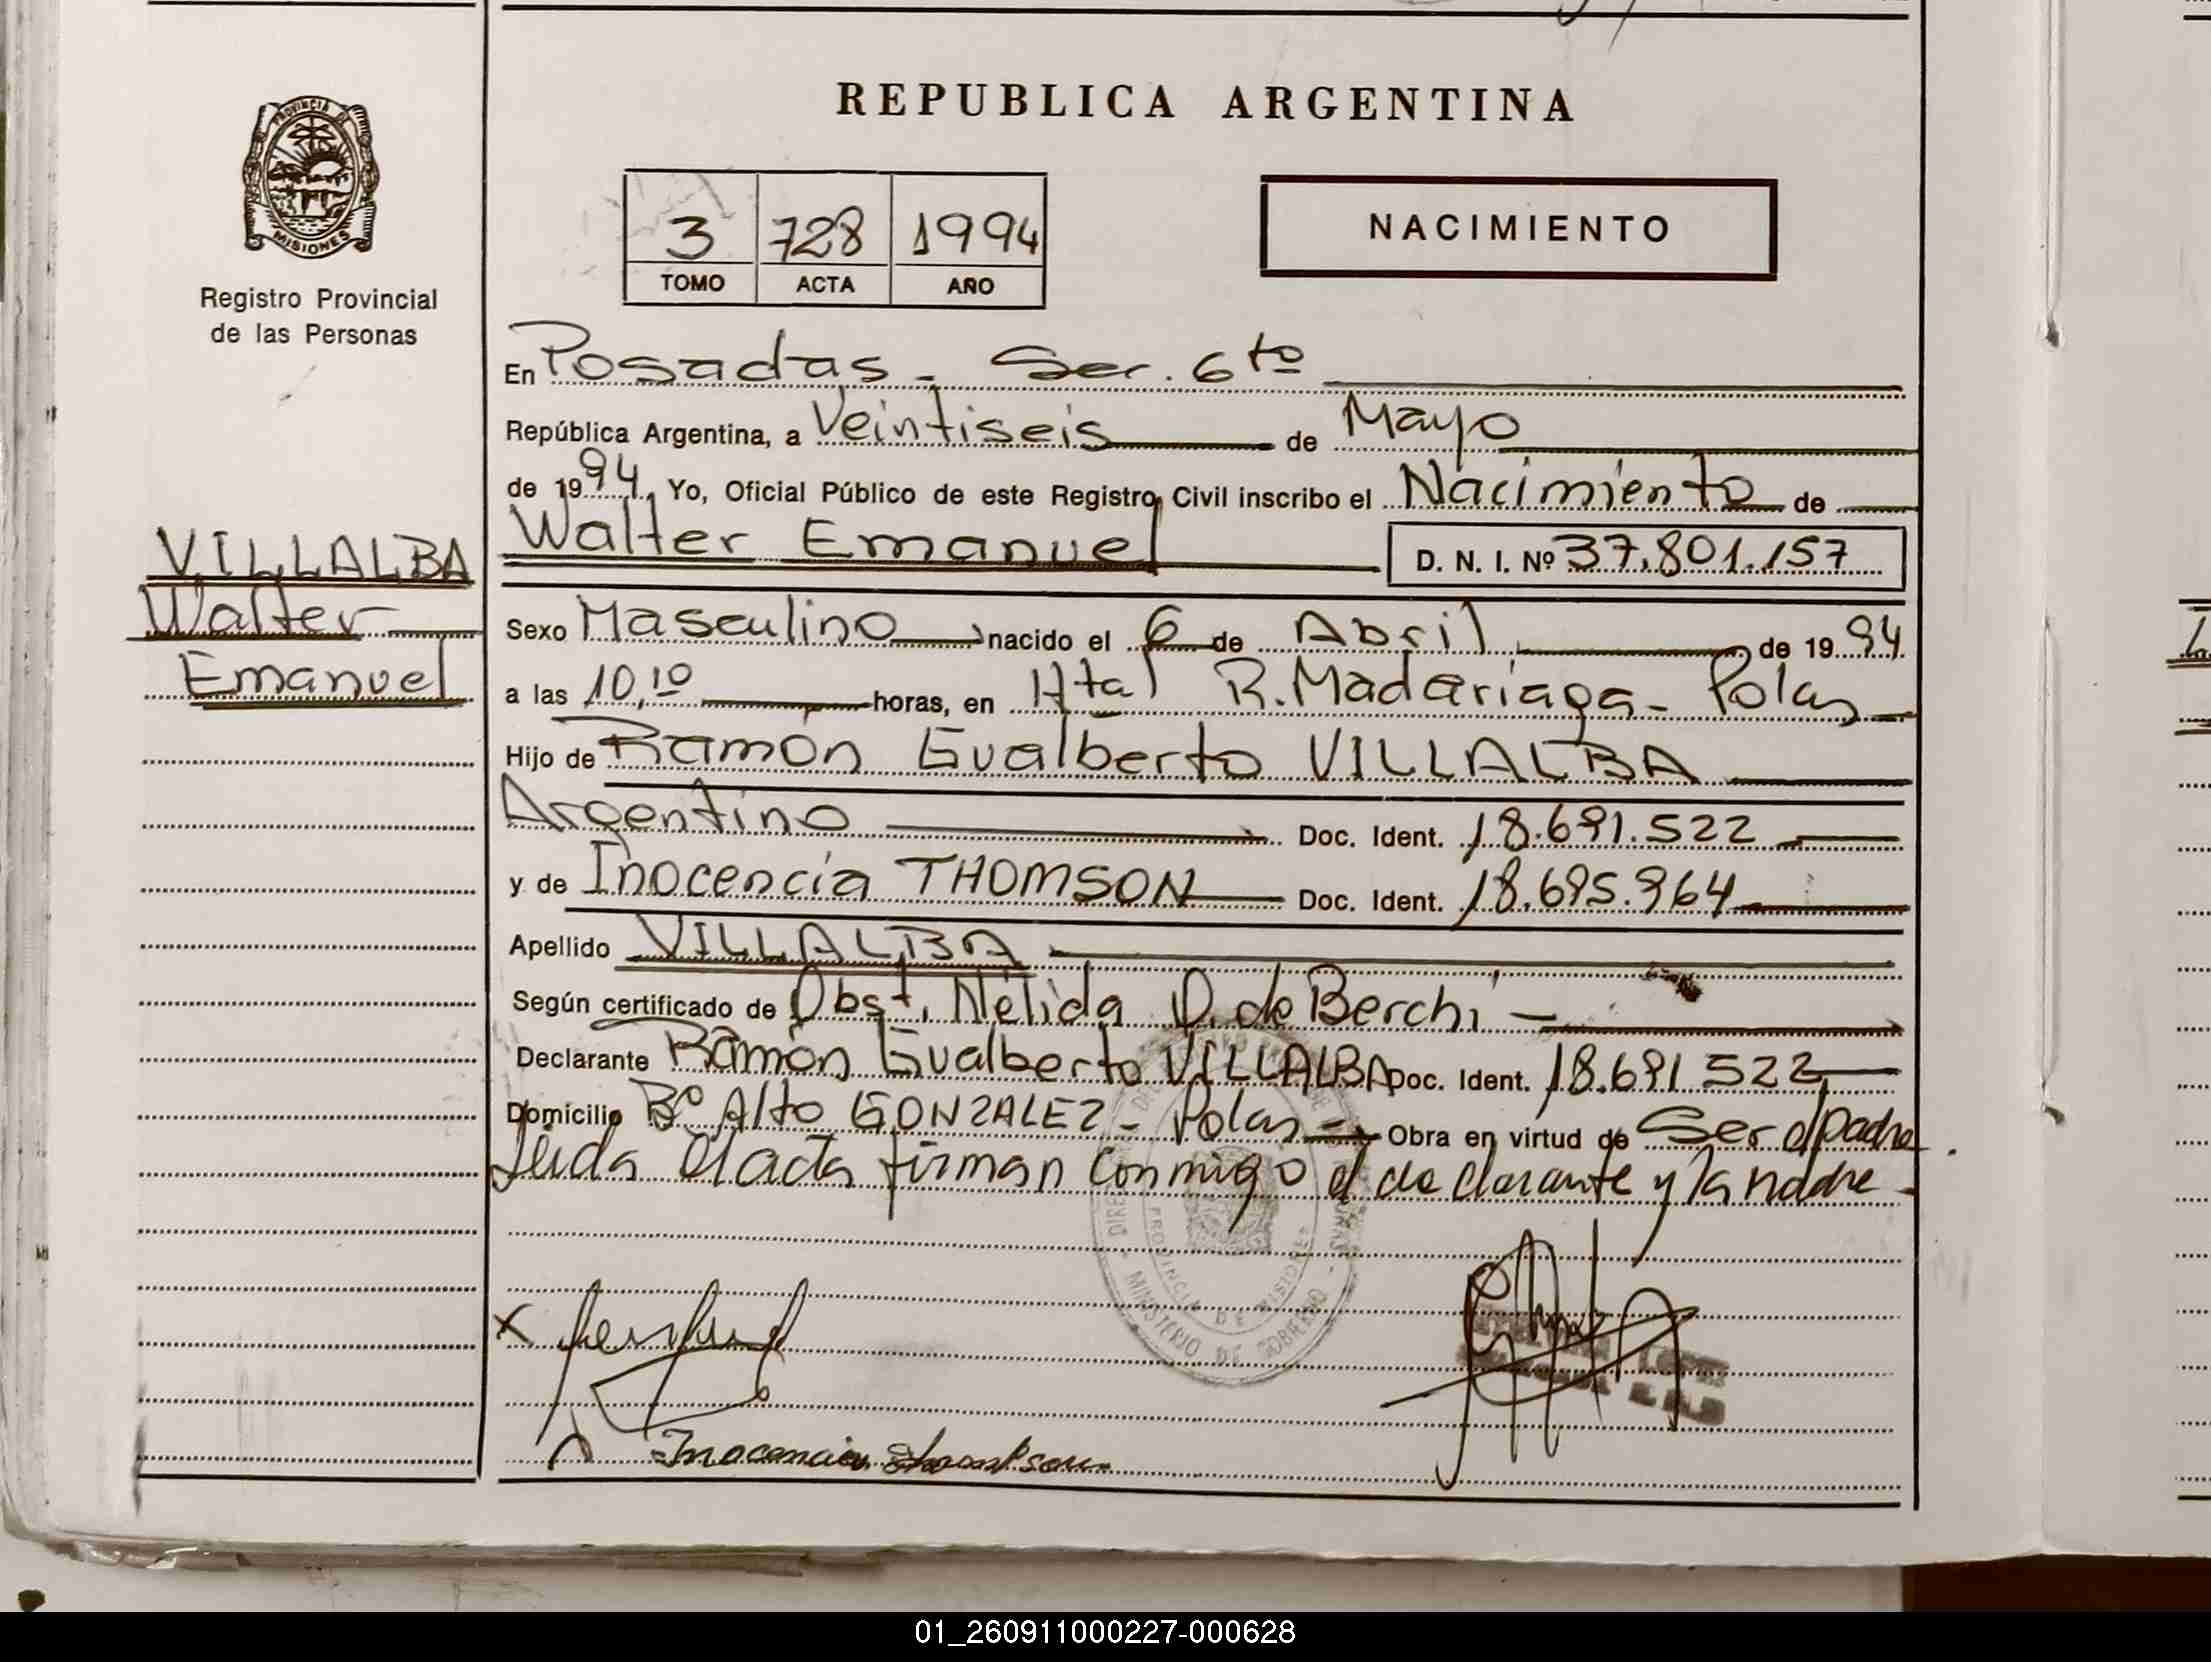 REPUBLICA ARGENTINA
PROVINCIA
MISIONES
Registro Provincial
de las Personas
3 728 1994
TOMO ACTA AÑO
NACIMIENTO
En Posadas - Sec. 6to
República Argentina, a Veintiseis de Mayo
de 1994, Yo, Oficial Público de este Registro Civil inscribo el Nacimiento de
VILLALBA
Walter
Emanuel
Walter Emanuel D. N. I. Nº 37.801.157
Sexo Masculino nacido el 6 de Abril de 1994
a las 10,10 horas, en Htal R. Madariaga - Pdas
Hijo de Ramón Gualberto VILLALBA
Argentino Doc. Ident. 18.691.522
y de Inocencia THOMSON Doc. Ident. 18.695.964
Apellido VILLALBA
Según certificado de Obst. Nélida D. de Berchi -
Declarante Ramón Gualberto VILLALBA Doc. Ident. 18.691.522
Domicilio Bº Alto GONZALEZ - Pdas - Obra en virtud de Ser el padre.
Leída el acta firman conmigo el declarante y la madre -
PROVINCIA DE MISIONES
MINISTERIO DE GOBIERNO
Inocencia
LOPEZ
01_260911000227-000628